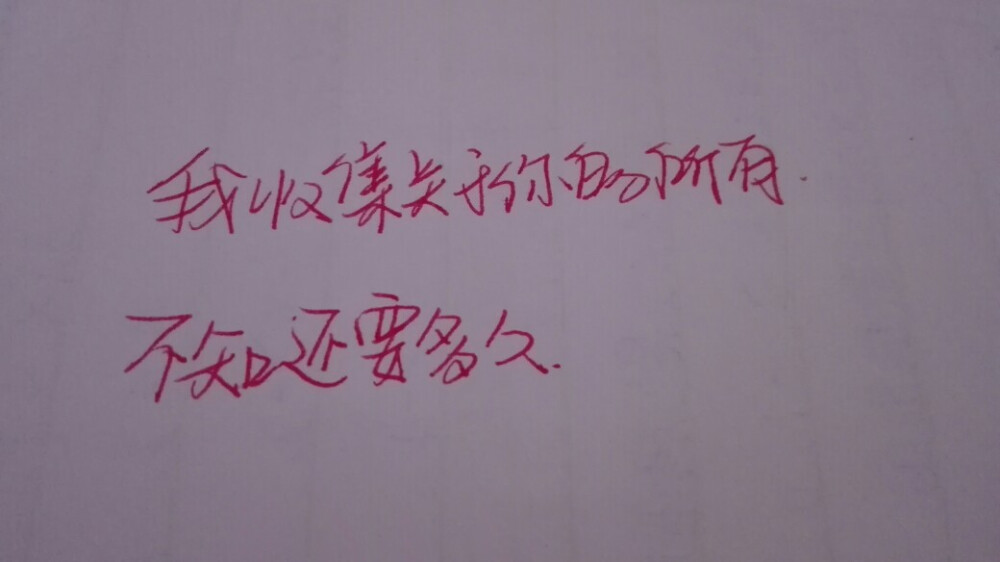 我收集关于你的所有.
不知还要多久.